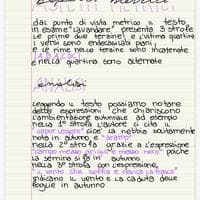 ASPETTI METRICI
dal punto di vista metrico il testo
in esame "lavandare" presenta 3 strofe
le prime due terzine e l'ultima quartina
i versi sono endecasillabi piani
e le rime nelle terzine sono incatenate
e nella quartina sono alternate
ANALISI
analisi
Leggendo il testo possiamo notare
delle espressioni che chiariscono
l'ambientazione autunnale ad esempio
nella 1° strofa l'autore ci cita il
"vapor leggero" cioè la nebbia solitamente
nota in autunno e "aratro"
nella 2° strofa grazie a l'espressione
"campo mezzo grigio e mezzo nero" poiché
la semina si fa in autunno
nella 3° strofa con l'espressione,
"il vento che soffia e nevica la frasca"
indicano il vento e la caduta delle
foglie in autunno